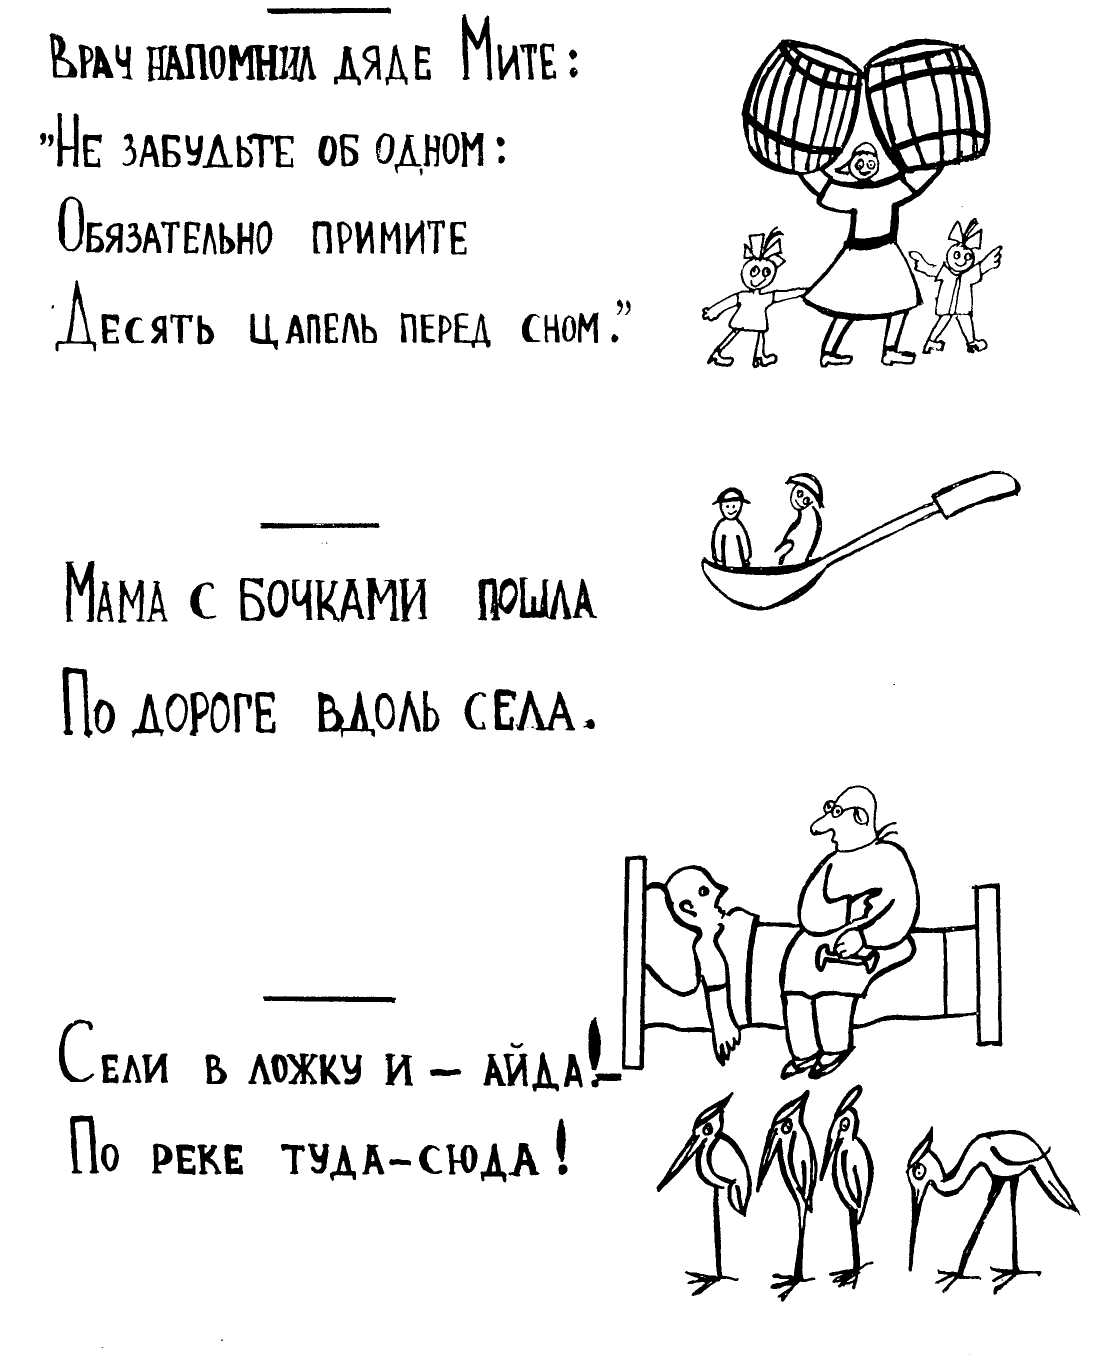 Врач напомнил дяде Мите:
"Не забудьте об одном:
Обязательно примите
Десять цапель перед сном."
Мама с бочками пошла
По дороге вдоль села.
Сели в ложку и – айда!–
По реке туда-сюда!